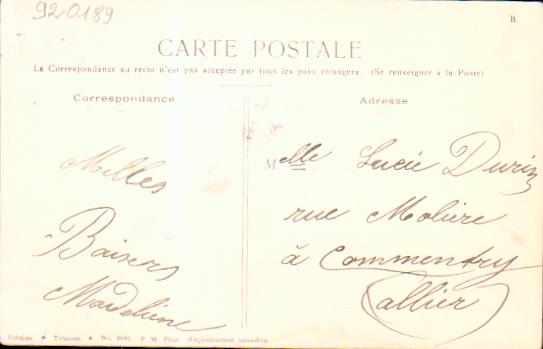 920189
B.
CARTE POSTALE
La Correspondance au recto n'est pas acceptée par tous les pays étrangers. (Se renseigner à la Poste)
Correspondance
Adresse
Milles
Baisers
Madeleine
Melle Lucie Durin
rue Molière
à Commentry
(allier)
Edition Trianon. No. P M. Phot Reproduction interdite